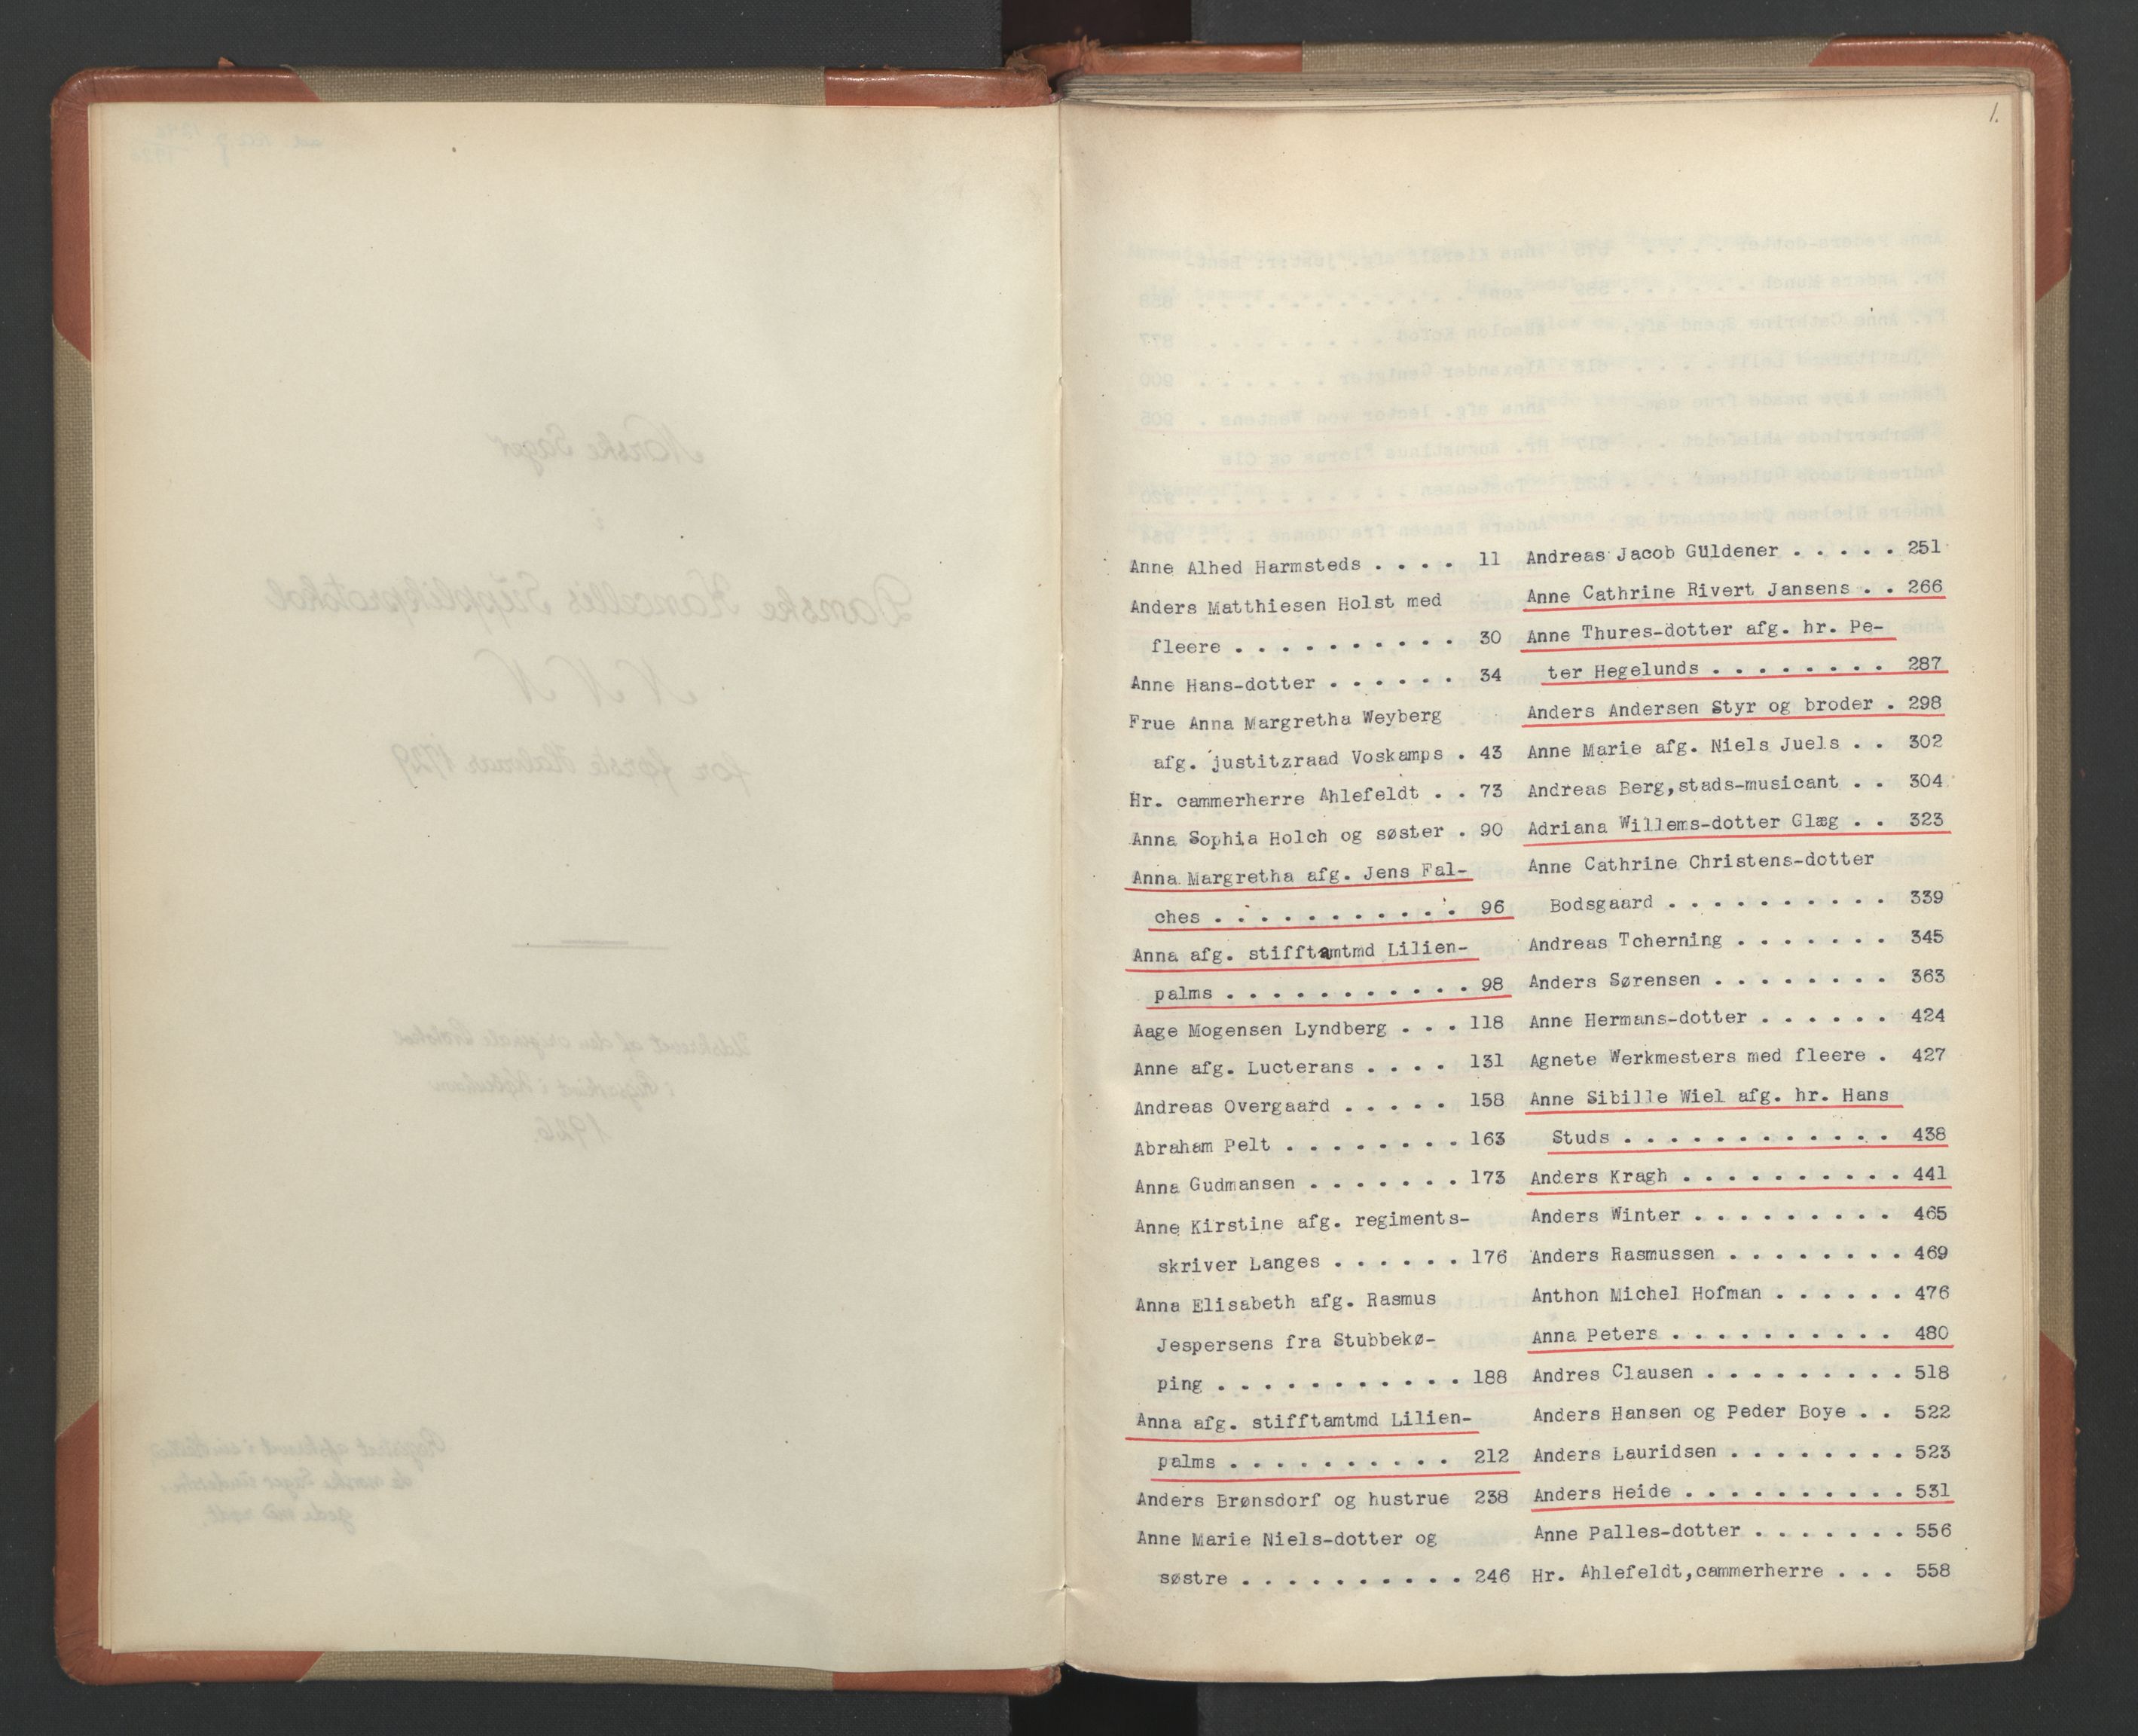 1.
Anne Alhed Harmsteds . . . . 11
Anders Matthiesen Holst med
fleere . . . . . . . . . . 30
Anne Hans-dotter . . . . . . 34
Frue Anna Margretha Weyberg
afg. justitzraad Voskamps . 43
Hr. cammerherre Ahlefeldt . . 73
Anna Sophia Holch og søster . 90
Anna Margretha afg. Jens Fal-
ches . . . . . . . . . . . 96
Anna afg. stifftamtmd Lilien-
palms . . . . . . . . . . . 98
Aage Mogensen Lyndberg . . . 118
Anne afg. Lucterans . . . . 131
Andreas Overgaard . . . . . 158
Abraham Pelt . . . . . . . . 163
Anna Gudmansen . . . . . . . 173
Anne Kirstine afg. regiments-
skriver Langes . . . . . . 176
Anna Elisabeth afg. Rasmus
Jespersens fra Stubbekø-
ping . . . . . . . . . . . 188
Anna afg. stifftamtmd Lilien-
palms . . . . . . . . . . 212
Anders Brønsdorf og hustrue 238
Anne Marie Niels-dotter og
søstre . . . . . . . . . . 246
Andreas Jacob Güldener . . . . . 251
Anne Cathrine Rivert Jansens . . 266
Anne Thures-dotter afg. hr. Pe-
ter Hegelunds . . . . . . . . 287
Anders Andersen Styr og broder . 298
Anne Marie afg. Niels Juels . . 302
Andreas Berg,stads-musicant . . 304
Adriana Willems-dotter Glæg . . 323
Anne Cathrine Christens-dotter
Bodsgaard . . . . . . . . . . 339
Andreas Tcherning . . . . . . . 345
Anders Sørensen . . . . . . . . 363
Anne Hermans-dotter . . . . . . 424
Agnete Werkmesters med fleere . 427
Anne Sibille Wiel afg. hr. Hans
Studs . . . . . . . . . . . . 438
Anders Kragh . . . . . . . . . . 441
Anders Winter . . . . . . . . . 465
Anders Rasmussen . . . . . . . . 469
Anthon Michel Hofman . . . . . . 476
Anna Peters . . . . . . . . . . 480
Andres Clausen . . . . . . . . . 518
Anders Hansen og Peder Boye . . 522
Anders Lauridsen . . . . . . . . 523
Anders Heide . . . . . . . . . . 531
Anne Palles-dotter . . . . . . . 556
Hr. Ahlefeldt,cammerherre . . . 558